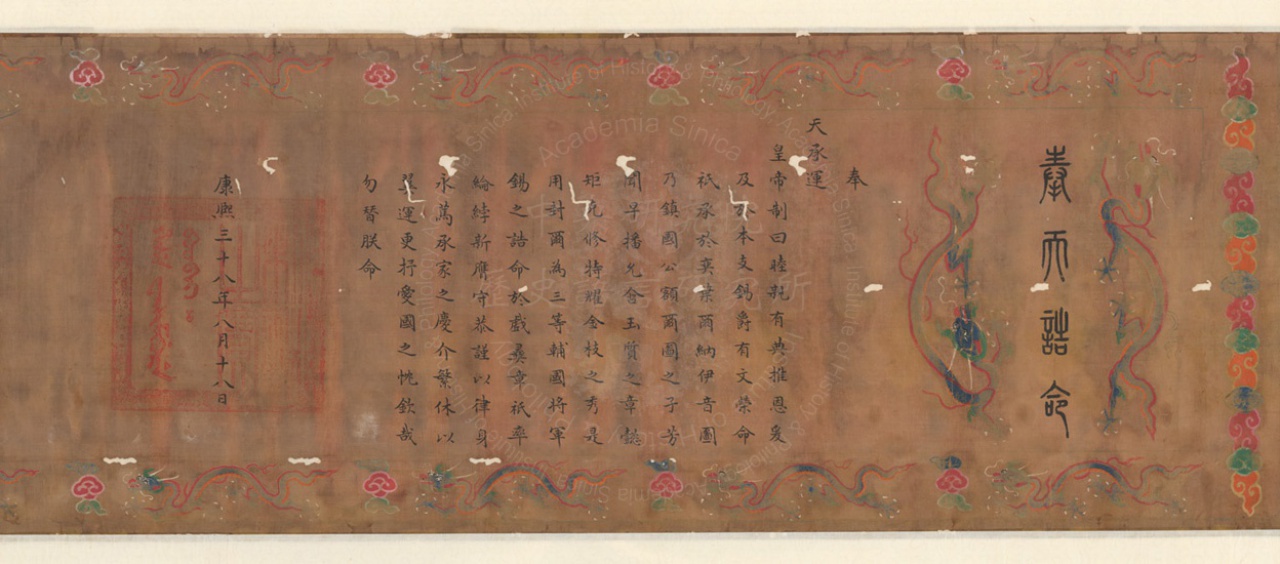 奉天誥命
奉
天承運
皇帝制曰睦親有典推恩爰
及於本支錫爵有文榮命
祇承於奕葉爾納伊音圖
乃鎮國公額爾圖之子芳
聞早播允會玉質之章懿
矩克修特耀金枝之秀是
用封爾為三等輔國將軍
錫之誥命於戲彝章祇率
綸綍斯膺守恭謹以律身
永承家之慶介繁休以
運更抒愛國之忱欽哉
勿替朕命
康熙三十八年八月十八日
Academia Sinica Institute of History & Philology